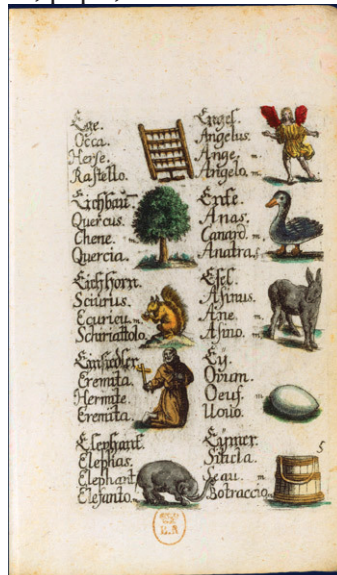 Ege.
Occa.
Herse.
Rastello.
Eichbaum.
Quercus.
Chene.
Quercia.
Eichhorn.
Sciurus.
Ecurieu. m
Schiriattolo.
Einsiedler.
Eremita.
Hermite.
Eremita.
Elephant.
Elephas.
Elephant
Elefanto.
Engel.
Angelus.
Ange. m
Angelo. m
Ente.
Anas.
Canard. m
Anatra.
Esel.
Asinus.
Ane. m
Asino. m
Ey.
Ovum.
Oeuf. m
Uovo.
Eymer.
Situla.
Seau. m
Botraccio.
5